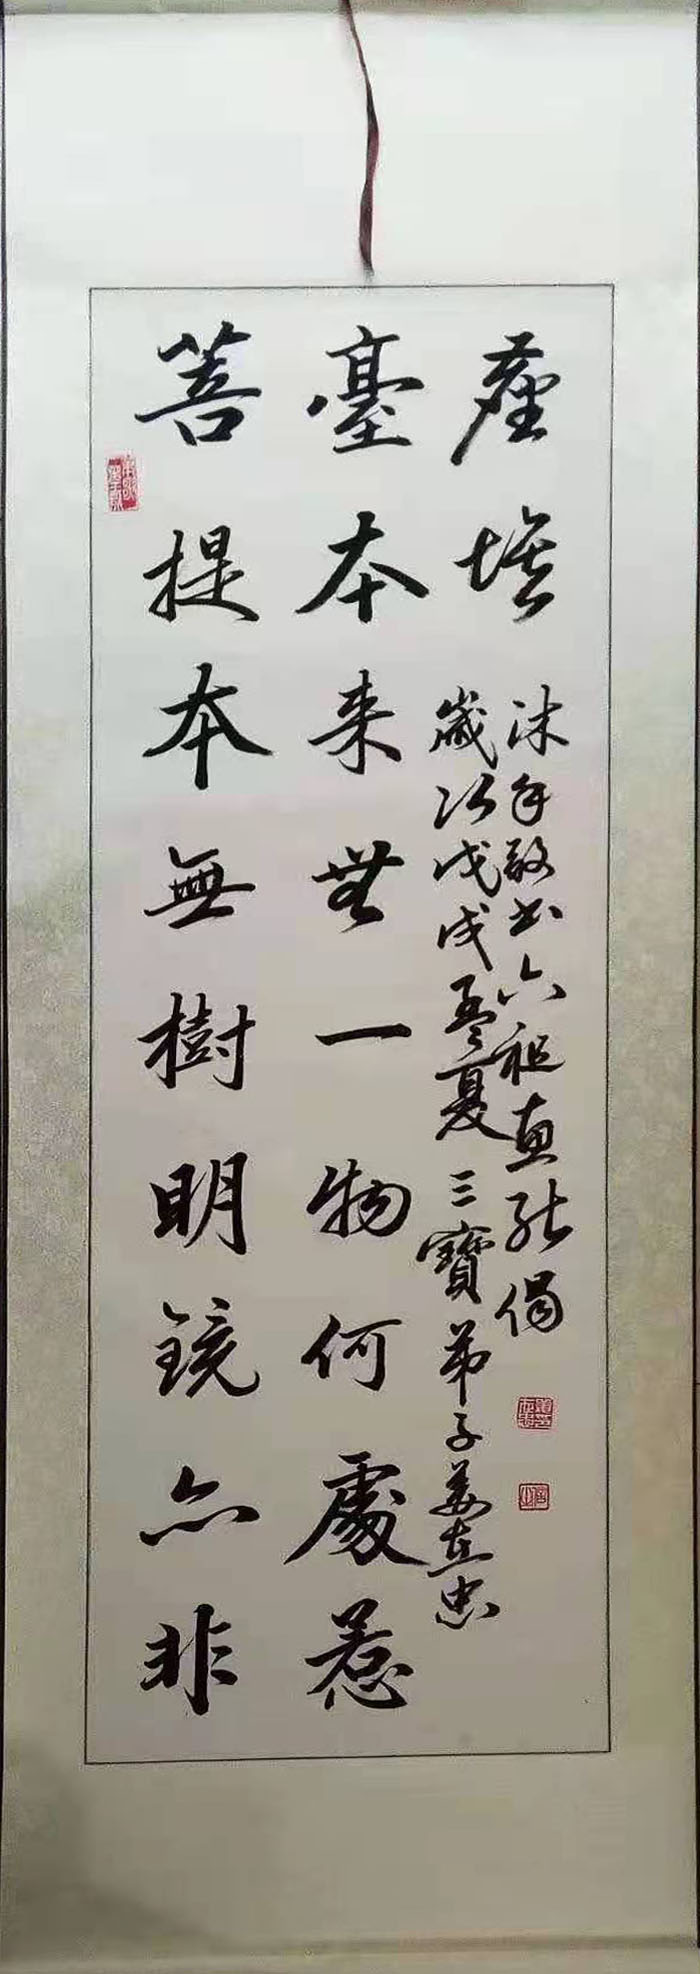 菩提本無樹明鏡亦非
臺本来無一物何處惹
塵埃
歲次戊戌孟夏三寶弟子姜忠
沐手敬书六祖惠能偈